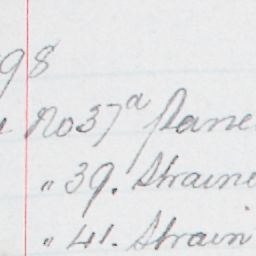 98
No 37a Pane
" 39. Straine
" 41. Strain